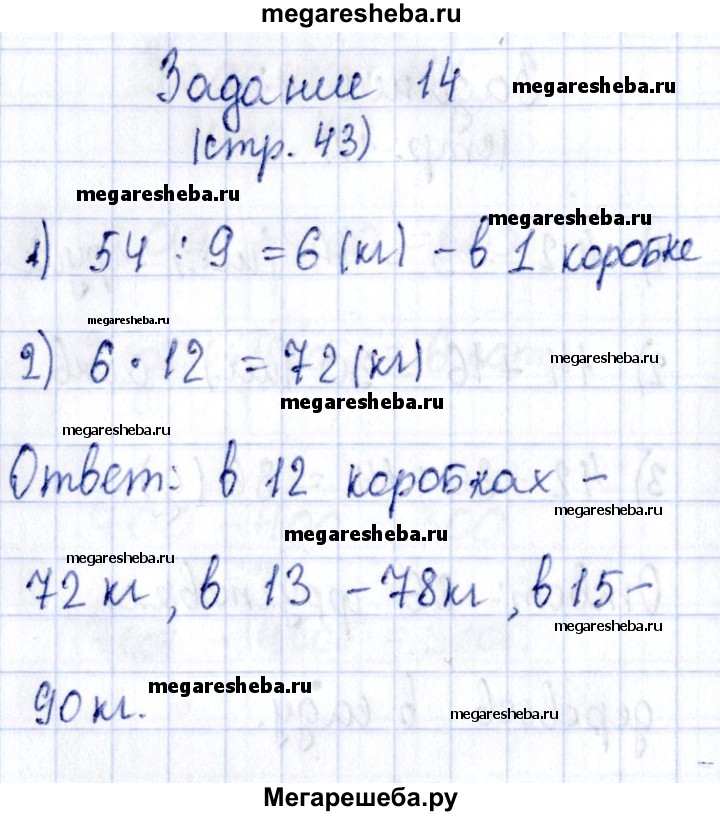 megaresheba.ru
Задание 14
megaresheba.ru
(стр. 43)
megaresheba.ru
megaresheba.ru
1) 54 : 9 = 6 (кг) - в 1 коробке
megaresheba.ru
2) 6 · 12 = 72 (кг)
megaresheba.ru
megaresheba.ru
megaresheba.ru
Ответ: в 12 коробках -
megaresheba.ru
megaresheba.ru
megaresheba.ru
72 кг, в 13 - 78 кг, в 15 -
megaresheba.ru
90 кг.
megaresheba.ru
megaresheba.ru
Мегарешеба.ру